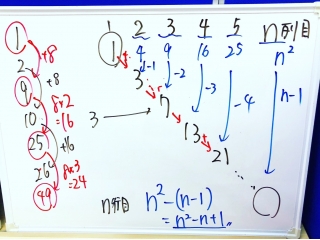 1
+8
2
+8
9
8×2
=16
10
25
+16
26
8×3
=24
49
1 2 3 4 5 n列目
4 9 16 25 n²
-1 -2 -3 -4 n-1
3
3 → 7
13
21
n行目 n²-(n-1)
=n²-n+1